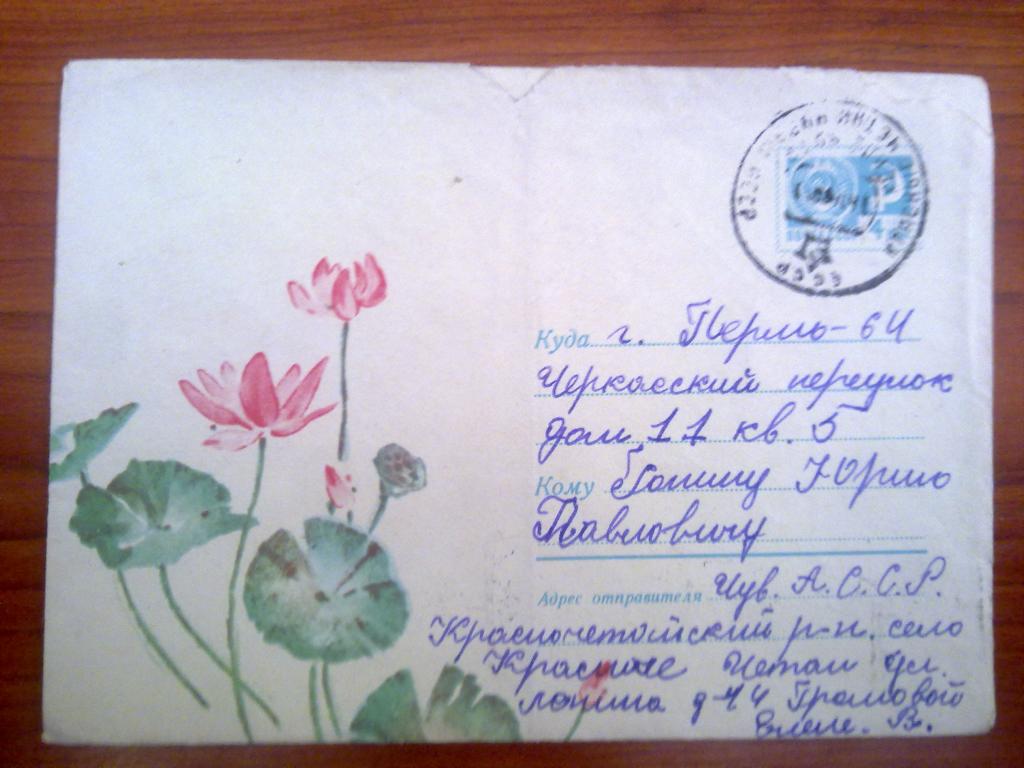 4
СССР
Куда г. Пермь-64
Черкасский переулок
дом 11 кв. 5
Кому Юрию
Павловичу
Адрес отправителя Чув. А.С.С.Р.
Красночетайский р-н. село
Красные Четаи ул.
д-44 Громовой
В.